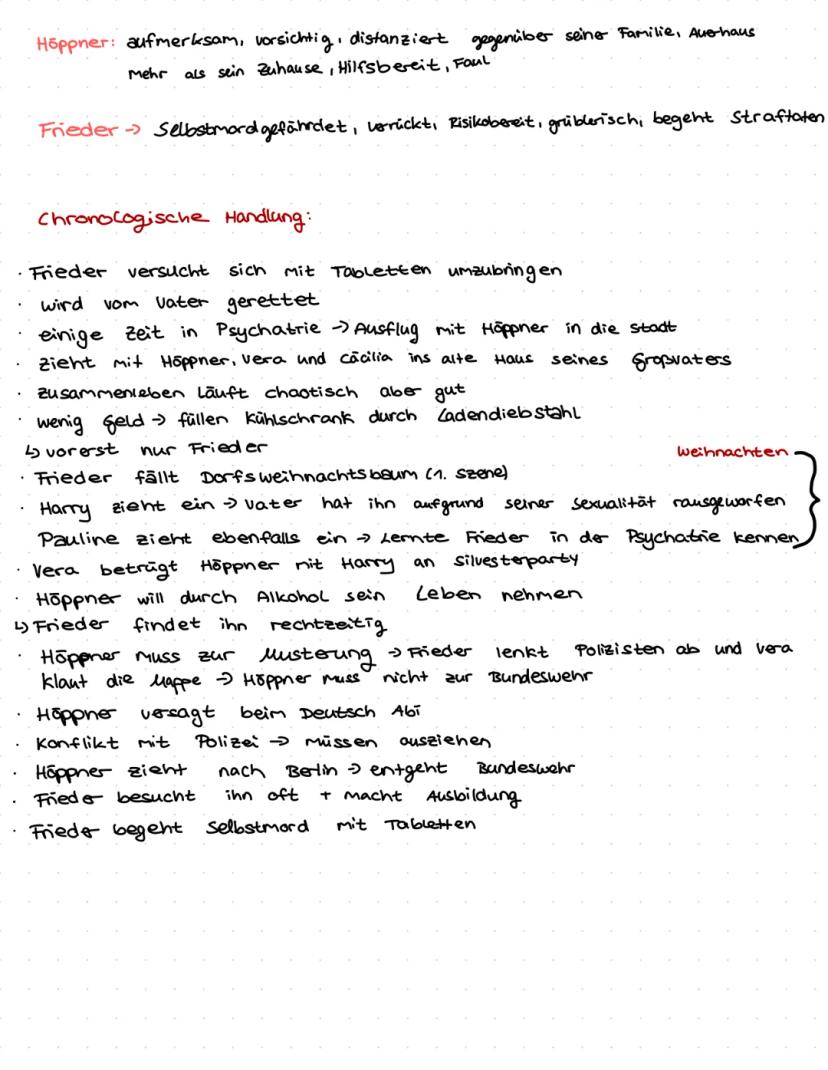 Höppner: aufmerksam, vorsichtig, distanziert gegenüber seiner Familie, Auerhaus
Mehr als sein Zuhause, Hilfsbereit, Faul
Frieder -> Selbstmordgefährdet, verrückt, Risikobereit, grüblerisch, begeht Straftaten
Chronologische Handlung:
· Frieder versucht sich mit Tabletten umzubringen
· wird vom Vater gerettet
· einige Zeit in Psychatrie -> Ausflug mit Höppner in die Stadt
· zieht mit Höppner, Vera und Cäcilia ins alte Haus seines Großvaters
· Zusammenleben läuft chaotisch aber gut
· wenig Geld -> füllen Kühlschrank durch Ladendiebstahl
↳ vorerst nur Frieder
Weihnachten
· Frieder fällt Dorfsweihnachtsbaum (1. Szene)
· Harry zieht ein -> Vater hat ihn aufgrund seiner Sexualität rausgeworfen
Pauline zieht ebenfalls ein -> Lernte Frieder in der Psychatrie kennen
· Vera betrügt Höppner mit Harry an Silvesterparty
· Höppner will durch Alkohol sein Leben nehmen
↳ Frieder findet ihn rechtzeitig
· Höppner muss zur Musterung -> Frieder lenkt Polizisten ab und Vera
klaut die Mappe -> Höppner muss nicht zur Bundeswehr
· Höppner versagt beim Deutsch Abi
· Konflikt mit Polizei -> müssen ausziehen
· Höppner zieht nach Berlin -> entgeht Bundeswehr
· Frieder besucht ihn oft + macht Ausbildung
· Frieder begeht Selbstmord mit Tabletten